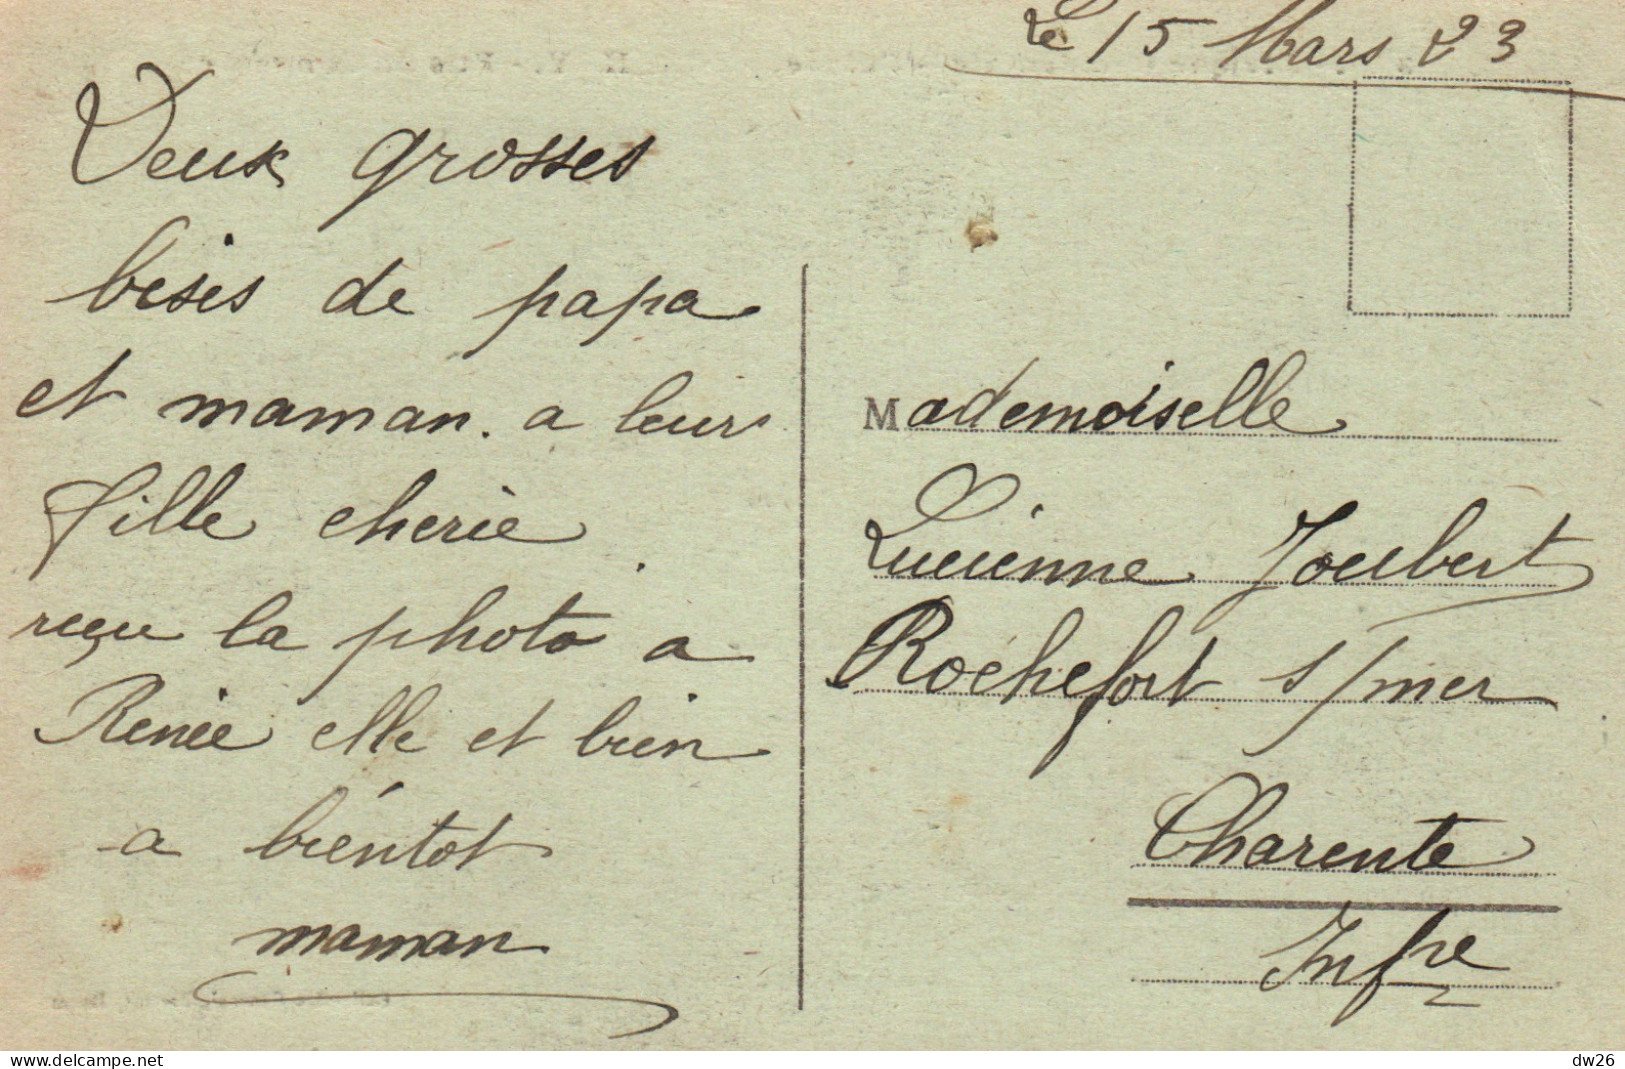 Le 15 Mars 23
Deux grosses
bises de papa
et maman. a leur
fille cherie.
reçu la photo a
Renée elle et bien
a bientot
maman
Mademoiselle
Lucienne Joubert
Rochefort s/mer
Charente
Infre
www.delcampe.net
dw26